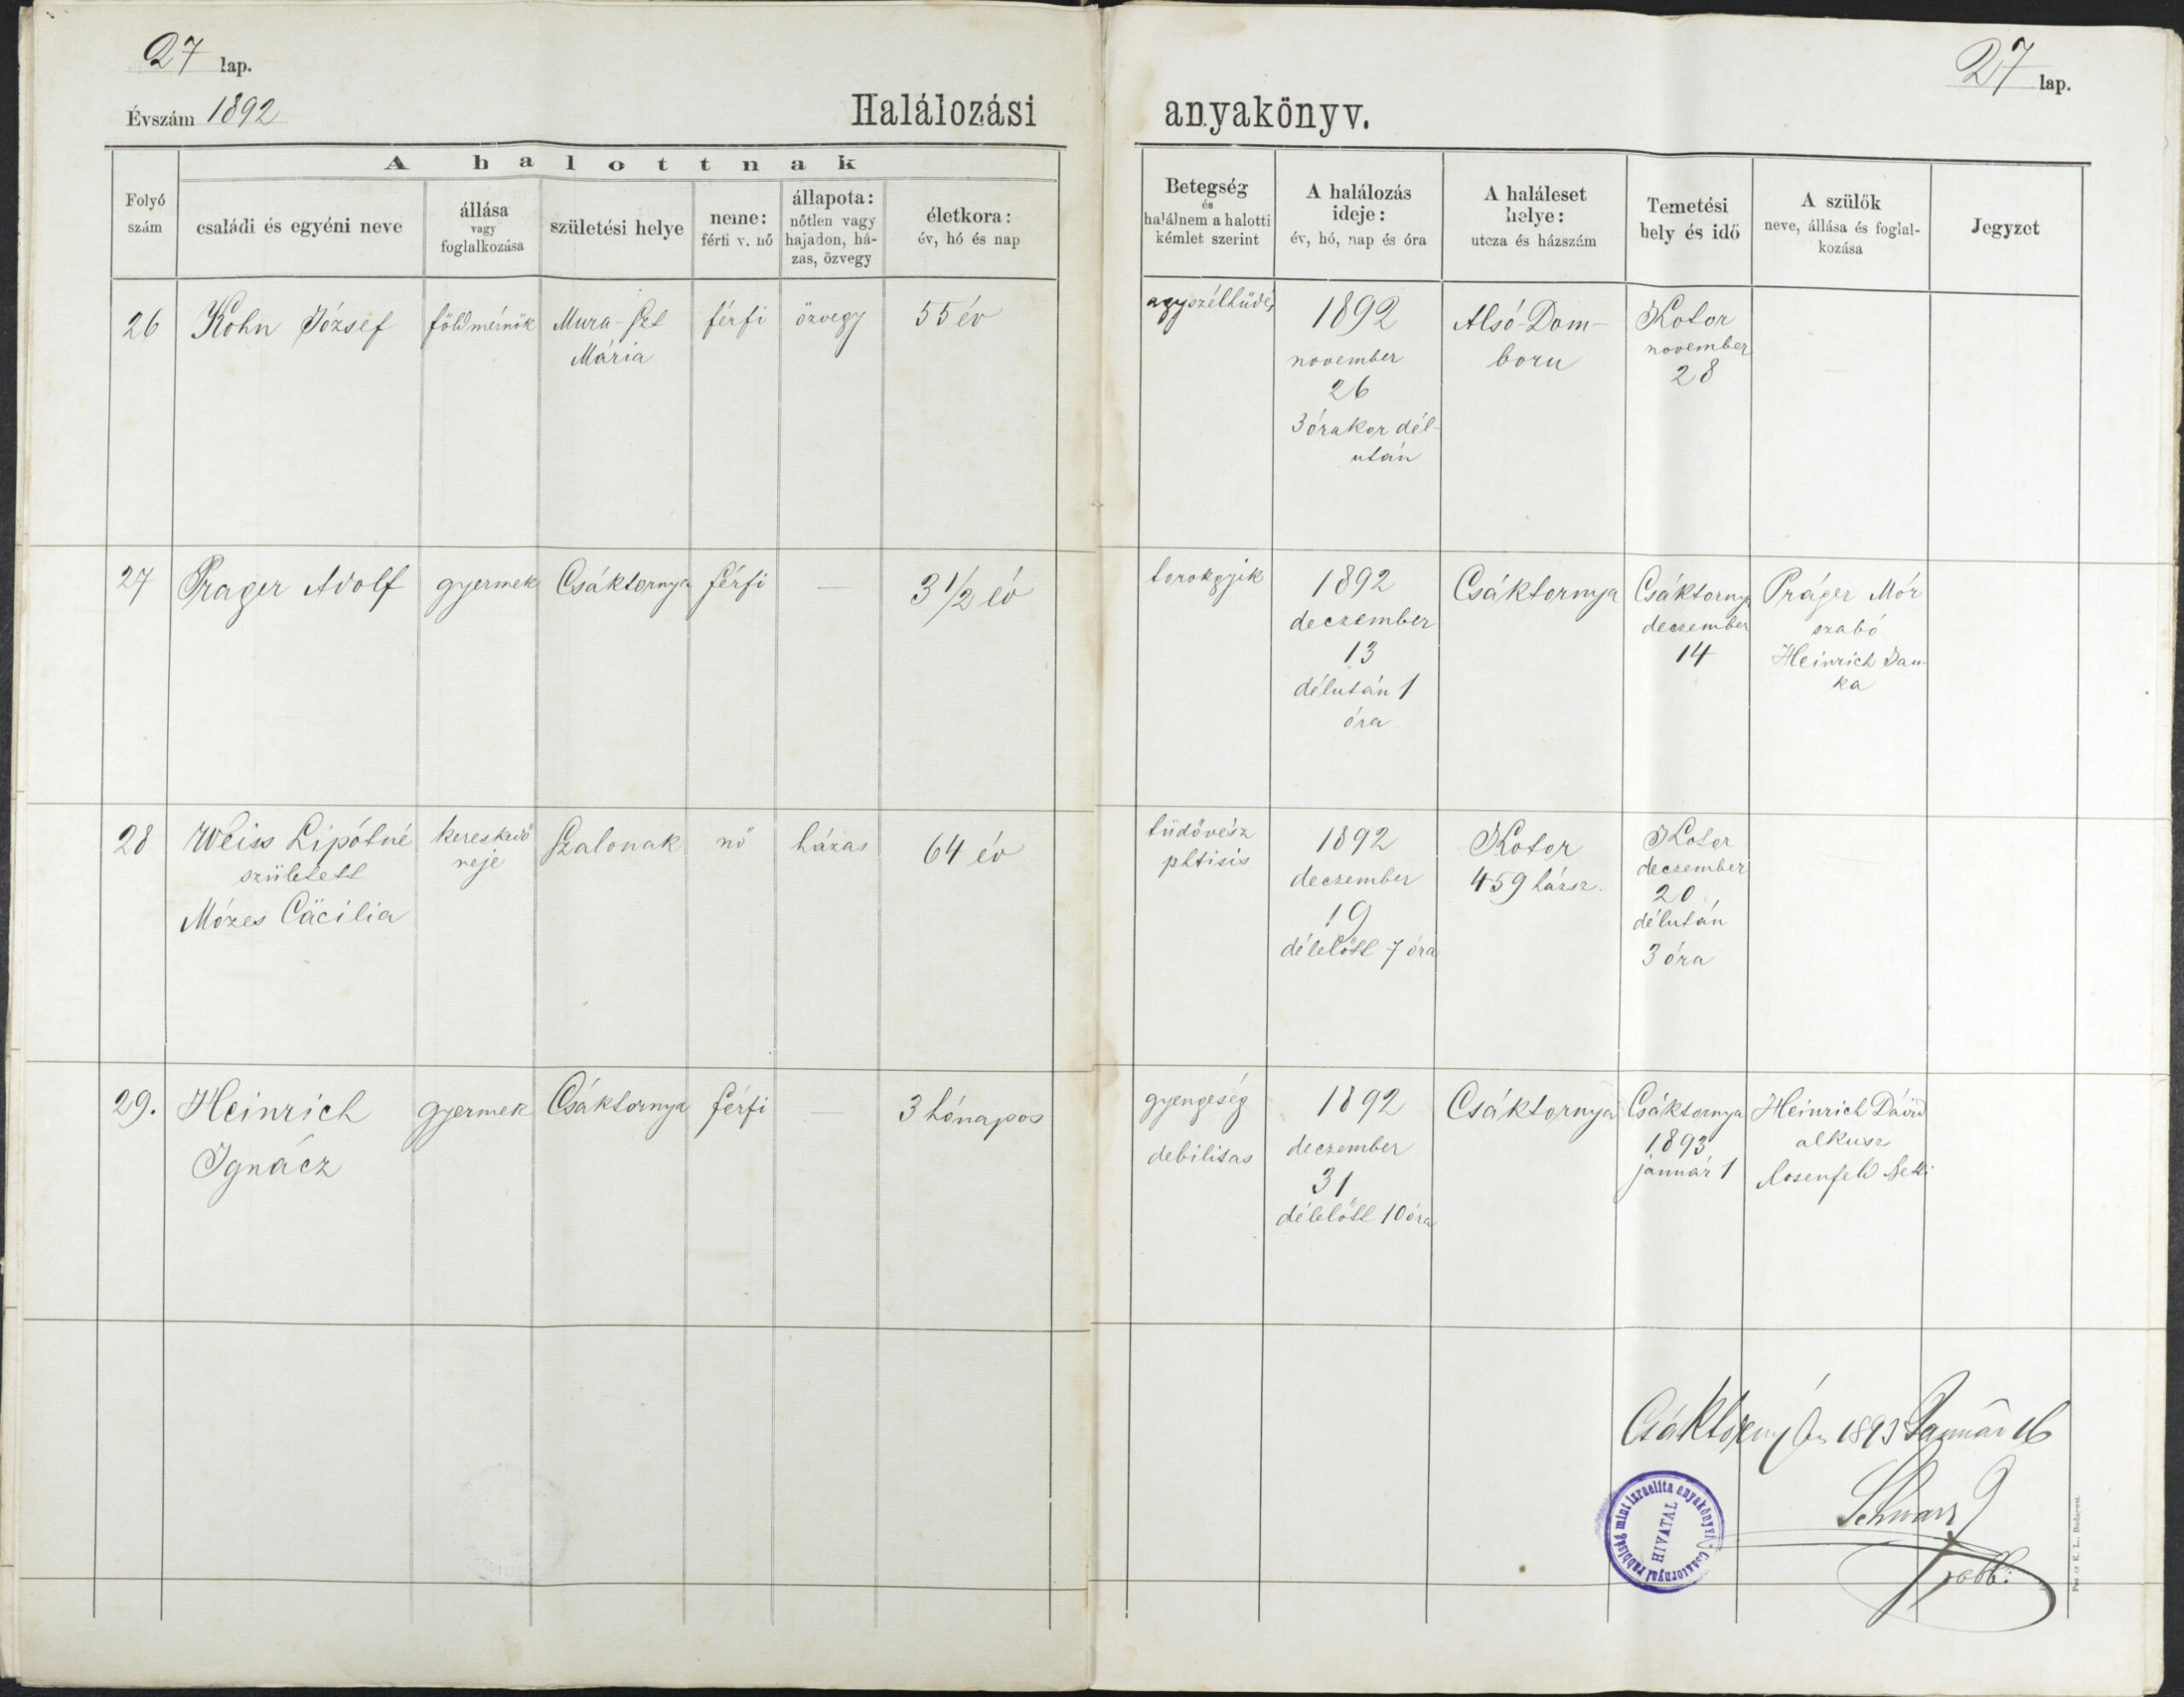 27 lap.
27 lap.
Évszám 1892
Halálozási anyakönyv.
A halottnak
Folyó
szám
családi és egyéni neve
állása
vagy
foglalkozása
születési helye
neme:
férfi v. nő
állapota:
nőtlen vagy
hajadon, há-
zas, özvegy
életkora:
év, hó és nap
Betegség
és
halálnem a halotti
kémlet szerint
A halálozás
ideje:
év, hó, nap és óra
A haláleset
helye:
utcza és házszám
Temetési
hely és idő
A szülők
neve, állása és foglal-
kozása
Jegyzet
26
Kohn József
földmérnök
Mura-Szt
Mária
férfi
özvegy
55 év
agyszélhüdés
1892
november
26
3 órakor dél-
után
Alsó-Dom-
boru
Kotor
november
28
27
Prager Adolf
gyermek
Csáktornya
férfi
—
3 1/2 év
torokgyík
1892
deczember
13
délután 1
óra
Csáktornya
Csáktornya
deczember
14
Práger Mór
szabó
Heinrich
ka
28
Weiss Lipótné
született
Mózes Cäcilia
kereskedő
neje
Szalonak
nő
házas
64 év
tüdővész
phtisis
1892
deczember
19
délelőtt 7 óra
Kotor
459 házsz.
Kotor
deczember
20
délután
3 óra
29.
Heinrich
Ignácz
gyermek
Csáktornya
férfi
3 hónapos
gyengeség
debilitas
1892
deczember
31
délelőtt 10 óra
Csáktornya
Csáktornya
1893
január 1
Heinrich Dávid
alkusz
Rosenfeld Netti
Csáktornyán 1893 Január 16
Schwarz
rabbi
Csáktornyai rabbiság mint izraelita anyakönyvi
HIVATAL
K. L. Budapest.